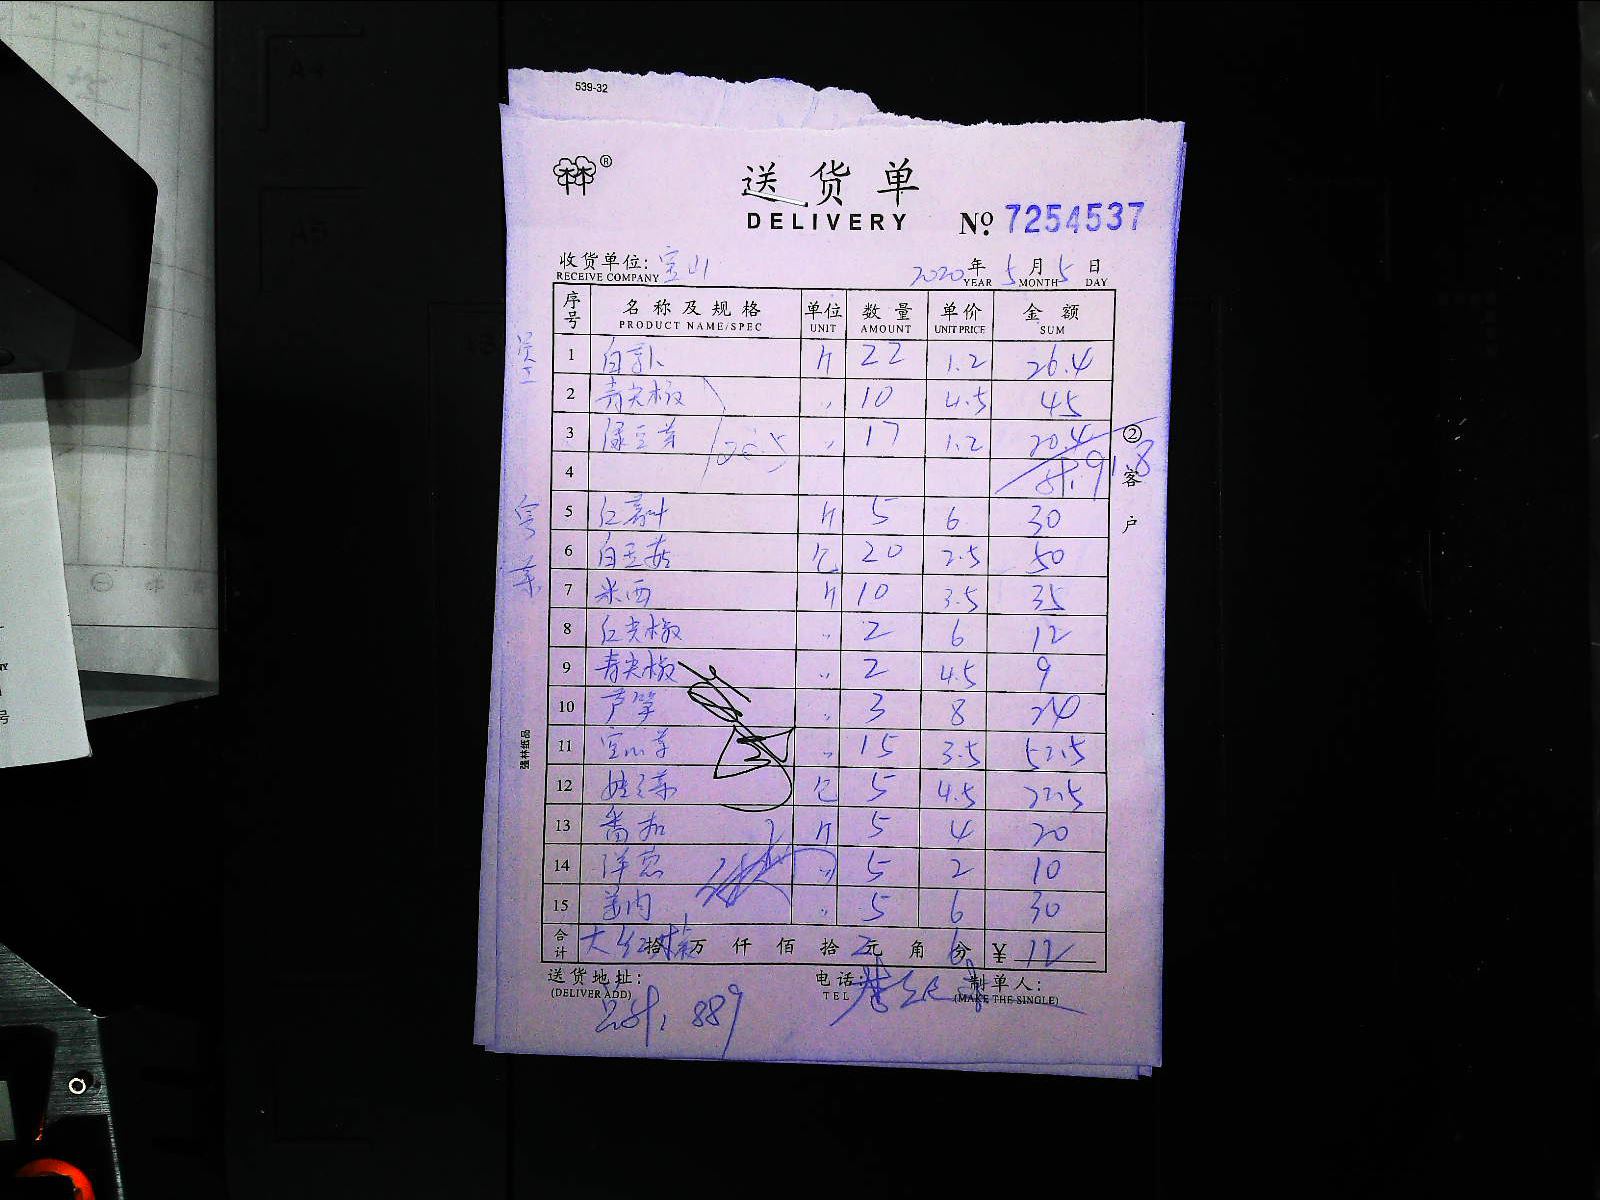 539-32
林®
送货单
DELIVERY № 7254537
收货单位: 宝山 2020年 5月 5日
RECEIVE COMPANY YEAR MONTH DAY
序号 名称及规格 单位 数量 单价 金额
PRODUCT NAME/SPEC UNIT AMOUNT UNIT PRICE SUM
员工
1 斤 22 1.2 26.4
2 青尖椒 〃 10 4.5 45
3 绿豆芽 〃 17 1.2 20.4
4 91.8
②客户
5 斤 5 6 30
6 白玉菇 包 20 2.5 50
7 米西 斤 10 3.5 35
8 红尖椒 〃 2 6 12
9 青尖椒 〃 2 4.5 9
10 芦笋 〃 3 8 24
11 〃 15 3.5 52.5
12 娃娃菜 包 5 4.5 22.5
13 番茄 斤 5 4 20
14 洋葱 〃 5 2 10
15 姜肉 〃 5 6 30
合计 大红椒 拾 万 仟 佰 拾 2 元 角 6 分 ¥ 12
强林纸品
送货地址: 电话: 制单人:
(DELIVER ADD) TEL (MAKE THE SINGLE)
889